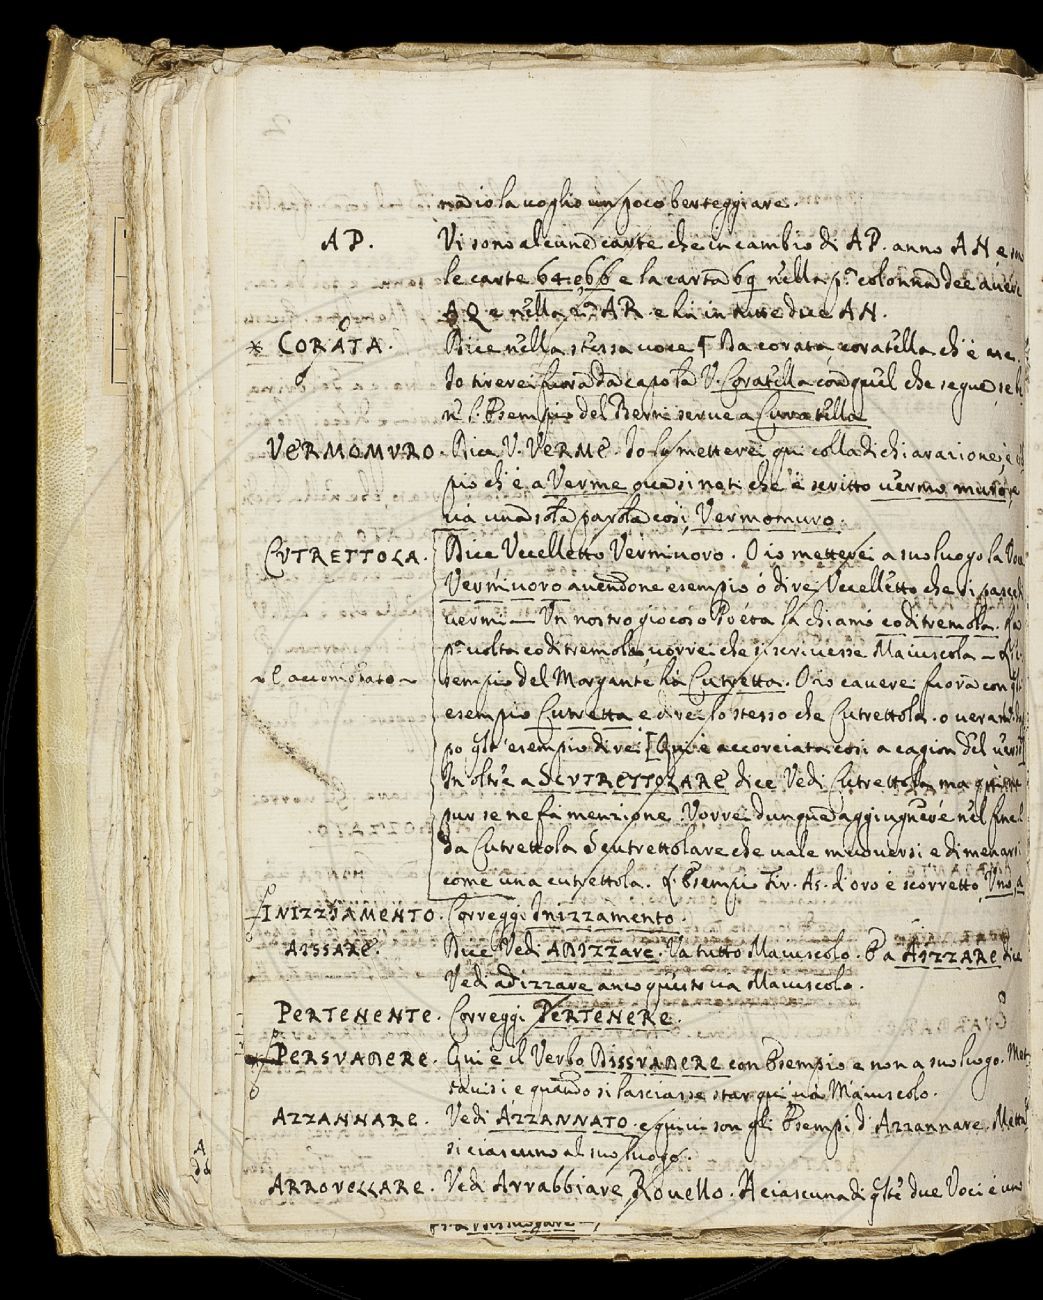 io la voglio un poco berteggiare.
AP. Vi sono alcune carte che in cambio di AP. anno AN e
le carte 64. e 66 e la carta 69 nella pª colonna dee avere
AQ e nella 2ª AR. e li in tutte dice AN.
* CORATA. Dice nella stessa voce ¶ Da corata, coratella ch'è
Io tirerei fuora da capo la V. Coratella con quel che segue, se
l'Esempio del Berni serve a Curatella
VERMOMURO. Dice V. VERME. Io lo metterei qui colla dichiarazione, e
pio ch'è a Verme quasi neti che è scritto vermo muro, e
va una sola parola così, Vermomuro.
CUTRETTOLA. Dice Uccelletto Verminoro. O io metterei a suo luogo la Voce
Vermivoro avendone esempio ò direi Uccelletto che si pasce di
vermi — Un nostro giocoso Poeta la chiamò coditremola. La
pª volta coditremola, vorrei che si scrivesse Maiuscola —
~ l'accomodato ~ sempio del Morgante hà Cutretta. O io caverei fuora con gli
esempio Cutretta e direi lo stesso che Cutrettola. o veramente
po gli esempio direi [Qui è accorciata così a cagion del verso]
In oltre a SCUTRETTOLARE dice Vedi Cutrettola, ma
pur se ne fa menzione. Vorrei dunque aggiugnere nel fine
da Cutrettola Scutrettolare che vale muoversi e dimenarsi
come una cutrettola. Esempio Fir. As. d'oro è scorretto
INIZZIAMENTO. Correggi Inizzamento.
AISSARE. Dice Vedi ADIZZARE. Va tutto Maiuscolo. E a AIZZARE dice
Vedi adizzare anco questo va Maiuscolo.
PERTENENTE. Correggi PERTENERE.
PERSUADERE. Qui è il Verbo DISSUADERE con Esempio e non a suo luogo. Met
tavisi e quando si lasciasse star qui và Maiuscolo.
AZZANNARE. Vedi AZZANNATO e quivi son gli Esempi d'Azzannare. Metta
si ciascuno al suo luogo.
ARROVELLARE. Vedi Arrabbiare Rovello. A ciascuna di queste due Voci è un